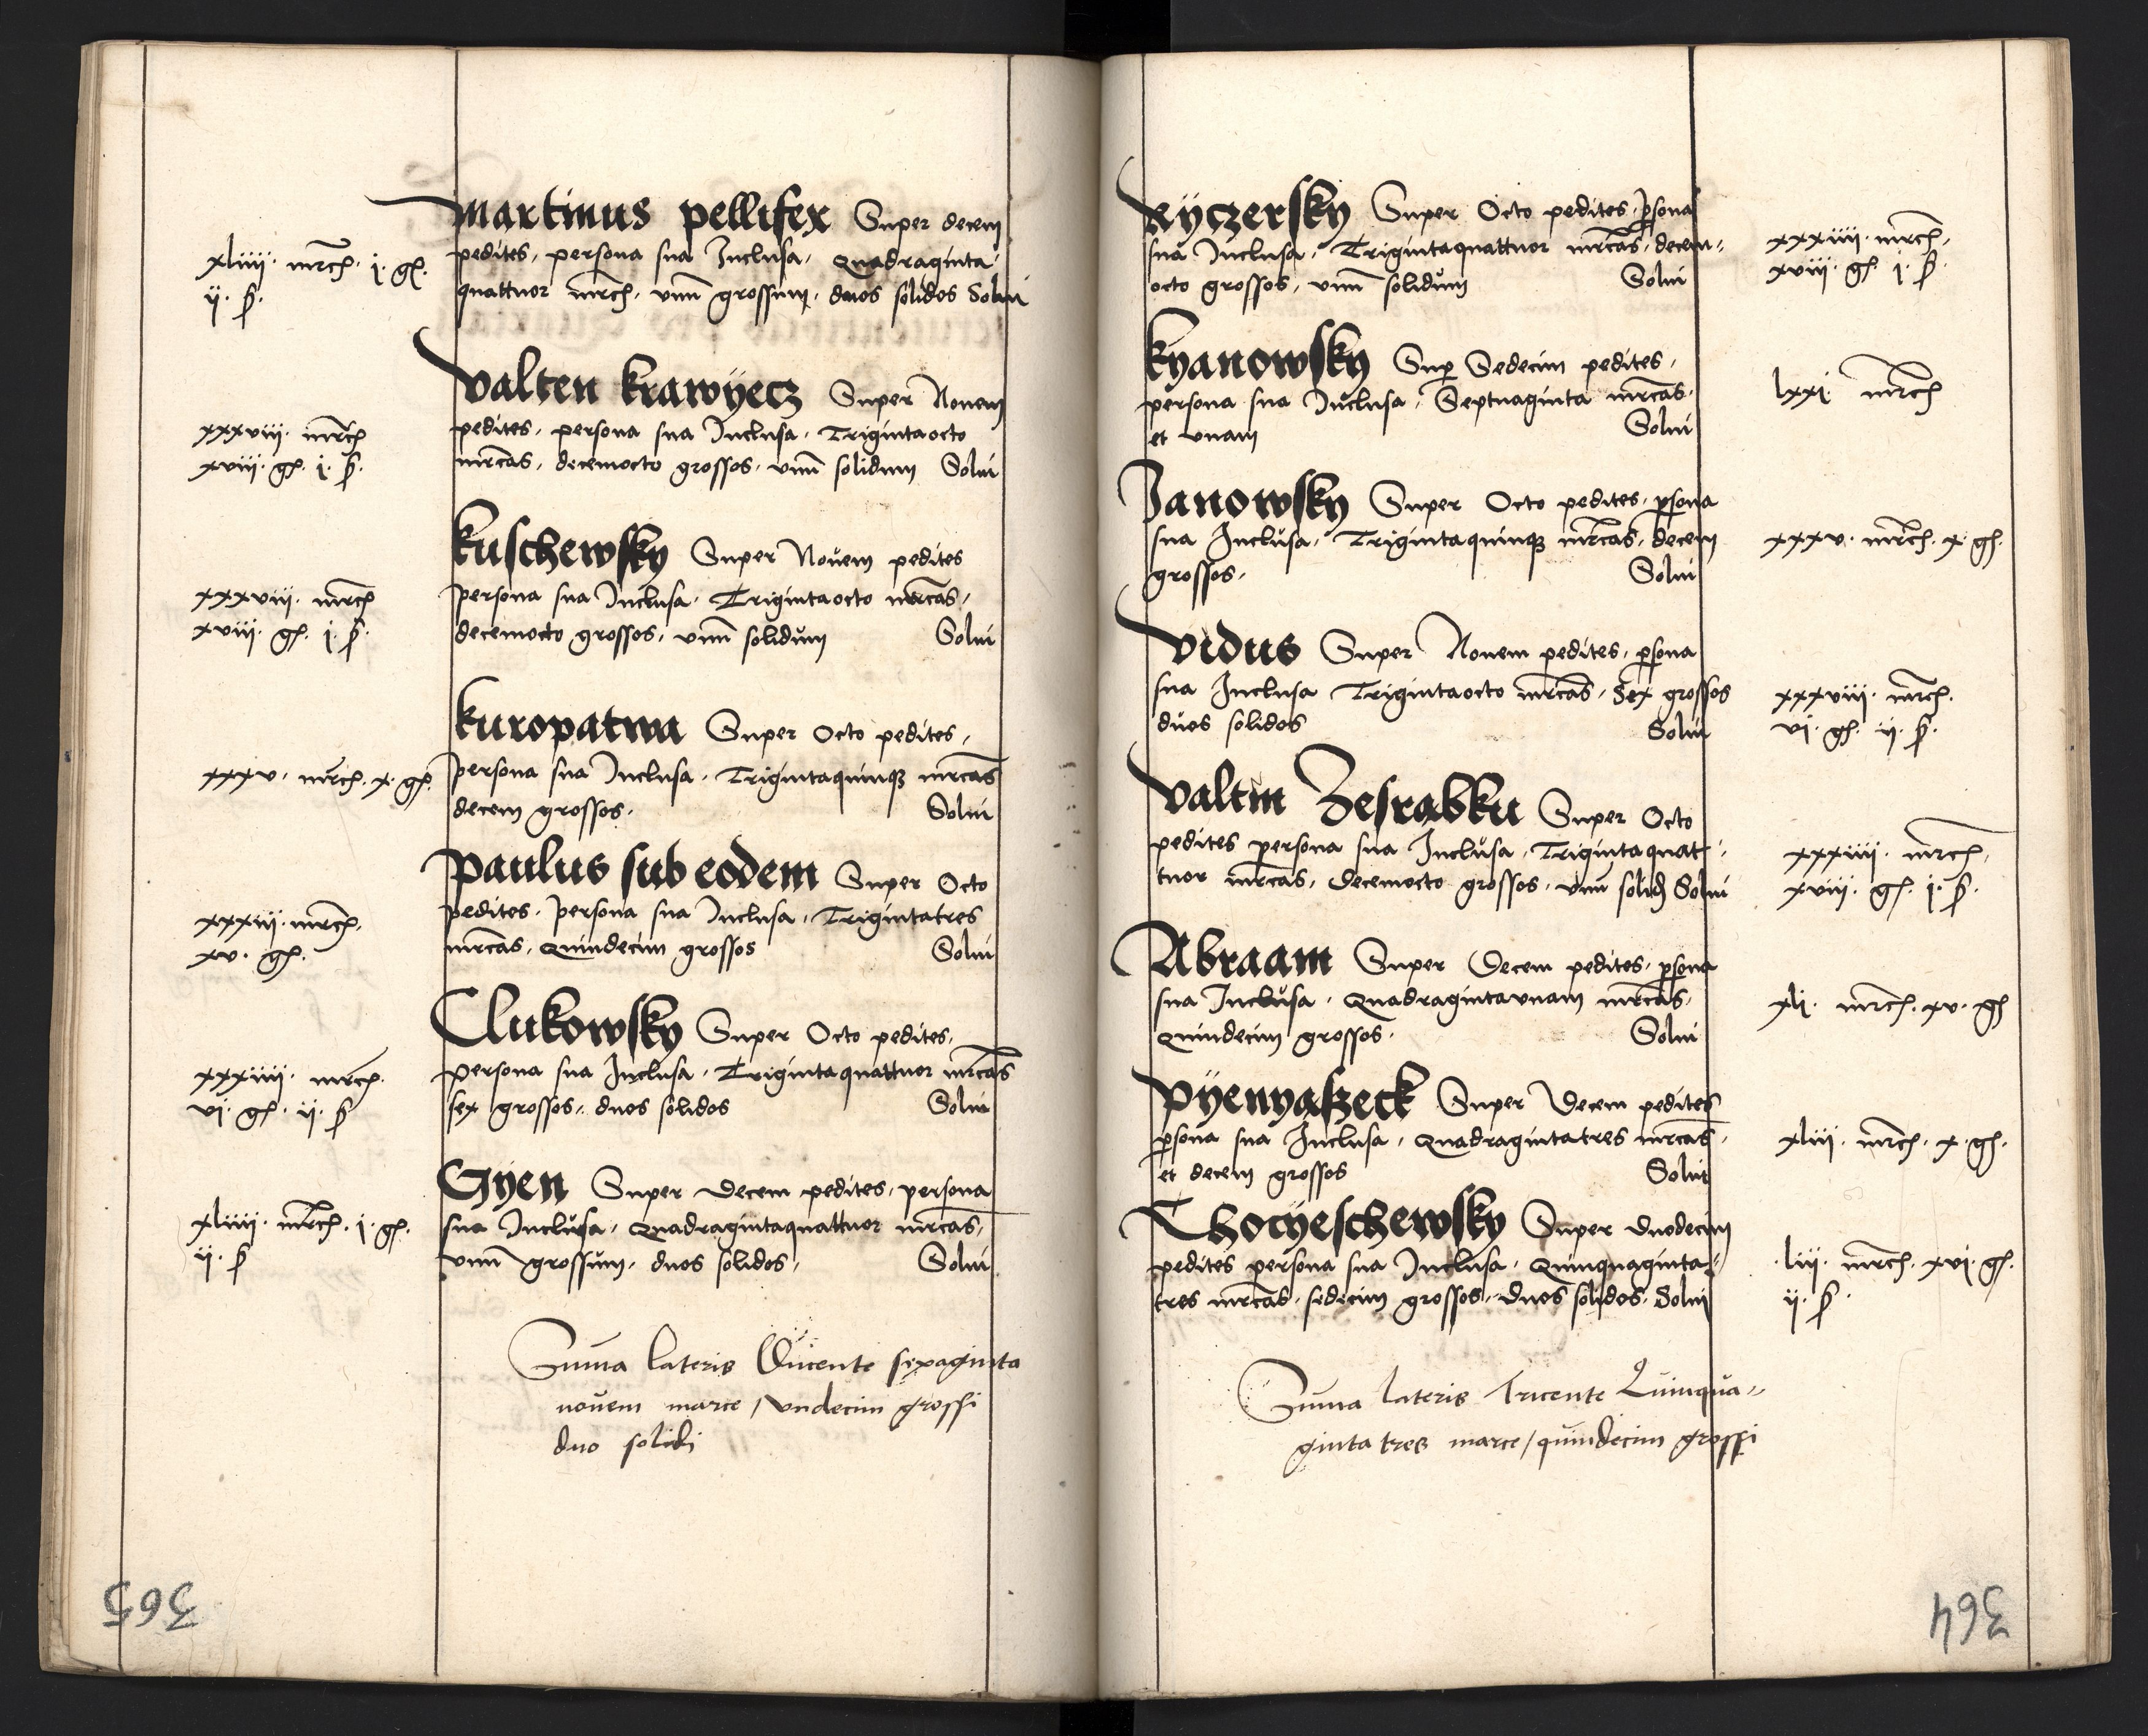 Martinus pellifex Super decem
pedites, persona sua Inclusa, Quadraginta
quattuor mrch, vnu grossum, duos solidos Solui
xliiii mrch i gs
ii s
Valten krawyecz Super Nouem
pedites, persona sua Inclusa, Trigintaocto
mrcas, decemocto grossos, vnu solidum Solui
xxxviii mrch
xviii gs i s
kuschewsky Super Nouem pedites
persona sua Inclusa, Trigintaocto mrcas,
decemocto grossos, vnu solidum Solui
xxxviii mrch
xviii gs i s
kuropatwa Super Octo pedites,
persona sua Inclusa, Trigintaquinqz mrcas
decem grossos. Solui
xxxv mrch x gs
Paulus sub eodem Super Octo
pedites, persona sua Inclusa, Trigintatres
mrcas, Quindecim grossos Solui
xxxiii mrch
xv gs
Clukowsky Super Octo pedites,
persona sua Inclusa, Trigintaquattuor mrcas
sex grossos, duos solidos Solui
xxxiiii mrch
vi gs ii s
Gyen Super decem pedites, persona
sua Inclusa, Quadragintaquattuor mrcas,
vnu grossum, duos solidos, Solui
xliiii mrch i gs
ii s
Suma lateris Ducente sexaginta
nouem marce / vndecim grossi
duo solidi
365
Ryczersky Super Octo pedites, psona
sua Inclusa, Trigintaquattuor mrcas, decem
octo grossos, vnu solidum Solui
xxxiiii mrch
xviii gs i s
kyanowsky Sup Sedecim pedites,
persona sua Inclusa, Septuaginta mrcas,
et vnam Solui
lxxi mrch
Janowsky Super Octo pedites, psona
sua Inclusa, Trigintaquinqz mrcas, decem
grossos, Solui
xxxv mrch x gs
Vidus Super Nouem pedites, psona
sua Inclusa Trigintaocto mrcas, Sex grossos
duos solidos Solui
xxxviii mrch
vi gs ii s
Valtin Zesrabku Super Octo
pedites persona sua Inclusa, Trigintaquat
tuor mrcas, decemocto grossos, vnu solid Solui
xxxiiii mrch
xviii gs i s
Abraam Super Decem pedites, psona
sua Inclusa, Quadragintavnam mrcas,
Quindecim grossos. Solui
xli mrch xv gs
Pyenyaszeck Super Decem pedites
psona sua Inclusa, Quadragintatres mrcas,
et decem grossos Solui
xliii mrch x gs
Thocyeschewsky Super duodecim
pedites persona sua Inclusa, Quinquaginta
tres mrcas, sedecim grossos, duos solidos, Solui
liii mrch xvi gs
ii s
Suma lateris Tricente Quinqua
ginta tres marce / quindecim grossi
364